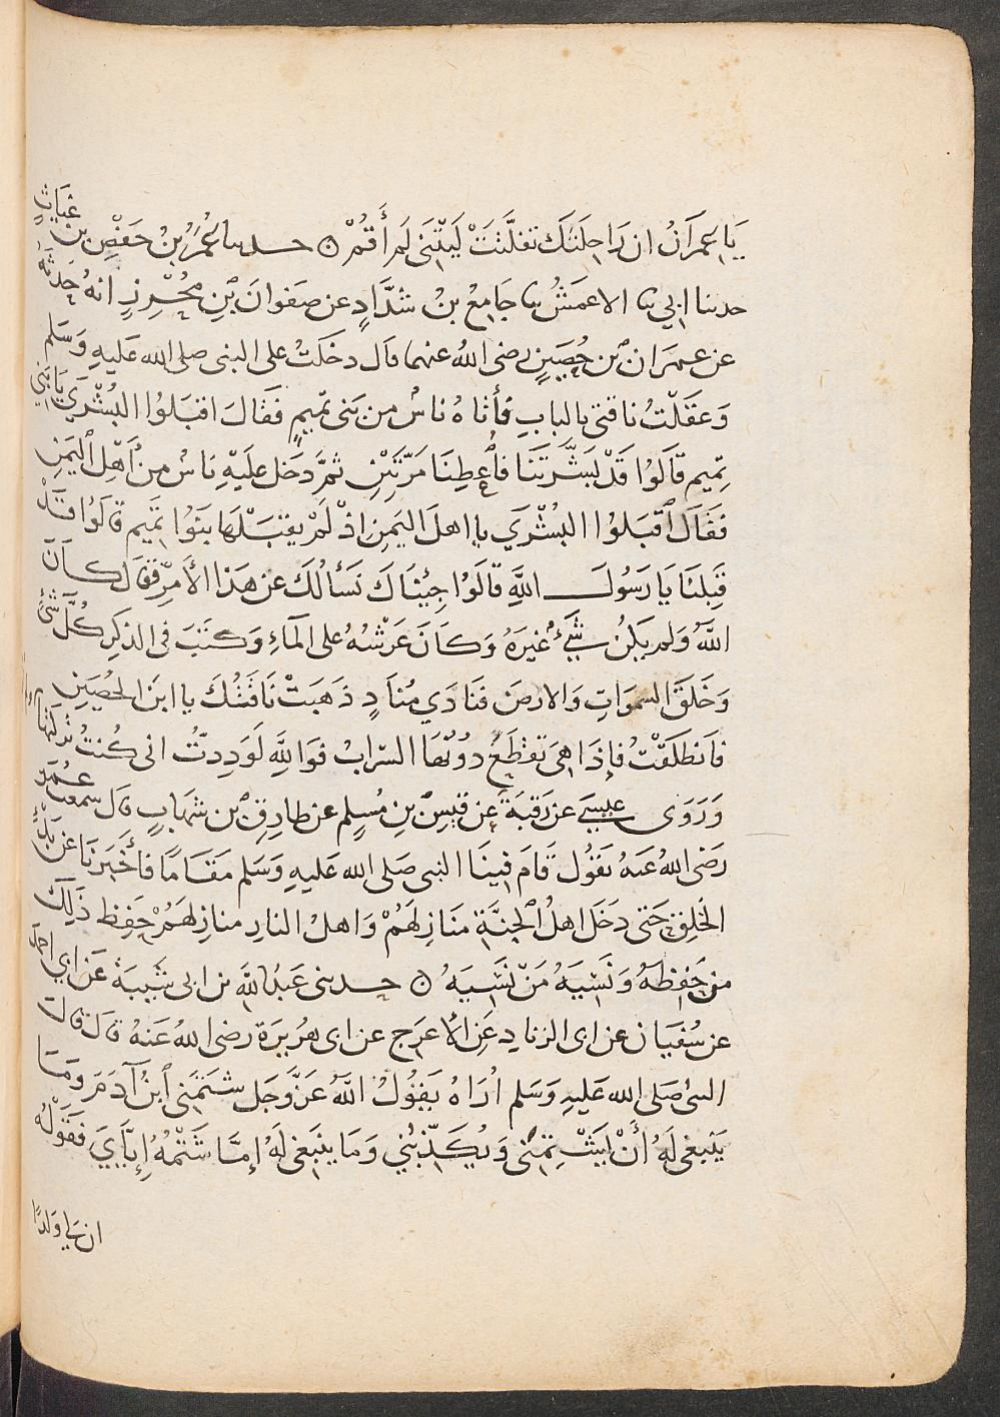 يَا عِمْرَانُ ان رَاحِلَتَكَ تفلَّتَتْ لَيْتَنِى لَمْ أَقُمْ ۞ حدثنا عُمَرُ بْنُ حَفْصِ بن غِيَاثٍ
حدثنا ابي ثنا الاعمَشُ ثنا جَامِعُ بْنُ شدَّادٍ عن صَفوانَ بْنِ مُحْرِزٍ انهُ حَدثهُ
عن عمرَان بْن حُصَينٍ رضى اللهُ عنهما قال دخَلتُ على النبى صلى الله عَليهِ وَسَلم
وَعقَلْتُ نا قتى بالبابِ فأتَاهُ ناسٌ من بَنى تَميمٍ فَقَالَ اقبَلوُا البُشْرَي يَا بَنِي
تمِيم قالوُا قَدْ بَشَّرتَنَا فأعْطِنَا مَرَّتَيْنِ ثمَّ دخَل عليَهِ نَاسٌ من أهْلِ اليَمَنِ
فَقَالَ اقبَلوُا البُشْرَي يا اهلَ اليمَنِ اذْ لَمْ يقْبَلْهَا بنَوُا تَمِيم قالَوُا قَدْ
قَبِلنَا يَا رَسُولَ اللَّهِ قالَوُا جِيْنَاكَ نَسَألُكَ عن هَذا الأَمرِ فقَال كانَ
اللَّهُ وَلم يَكنُ شَيْءٌ غيرَهُ وَكانَ عَرْشهُ على المآءِ وَكتَبَ فى الذكِر كُلَّ شَئ
وَخَلقَ السموَاتِ وَالارضَ فنَادَي مُنادٍ ذهَبَتْ نَاقَتُكَ يا ابنَ الحُصَينِ
فَانطَلَقْتُ فإذَا هِىَ تَقْطَعُ دوُنَهَا السّرابْ فوَاللهِ لَوَدِدتُّ انى كُنتُ تركتها
وَرَوَى عيسَى عن رَقَبَةَ عن قيسِ بنِ مُسْلِمٍ عن طارِقِ بْن شهَابٍ قال سمعت عُمَرَ
رَضى اللهُ عنهُ يقَوُل قَامَ فِينَا النبى صَلى الله عَليهِ وَسَلم مَقَامًا فأخْبَرنَا عن بَدْءِ
الخَلِقِ حَتى دَخَلَ اهلُ الجنَّةِ مَنَازِلهَمُ وَاهلُ النار منازِلهَمُ حَفِظ ذَلِكَ
من حَفِظهُ وَنَسِيَهُ مَنْ نَسِيَهُ ۞ حدثنى عَبدُ اللَّهِ بن ابى شَيبَةَ عن ابي احمَدَ
عن سُفيَان عن ابى الزنادِ عَنِ الاعرَجِ عن ابى هرُيرَة رضى اللهُ عَنهُ قالَ قال
النبى صَلى الله عَليهِ وَسَلم ارُاَهُ يقَوُلُ اللَّهُ عَزَّ وَجَل شتَمَنِى ابنُ آدَمَ وَمَا
يَنبغى لَهُ أَنْ يَشْتِمَنى وَيُكَذّبُني وَمَا ينَبَغى لَهُ إمَّا شَتْمُهُ إِيَّاىَ فقَوْلُه
ان لي وَلدًا